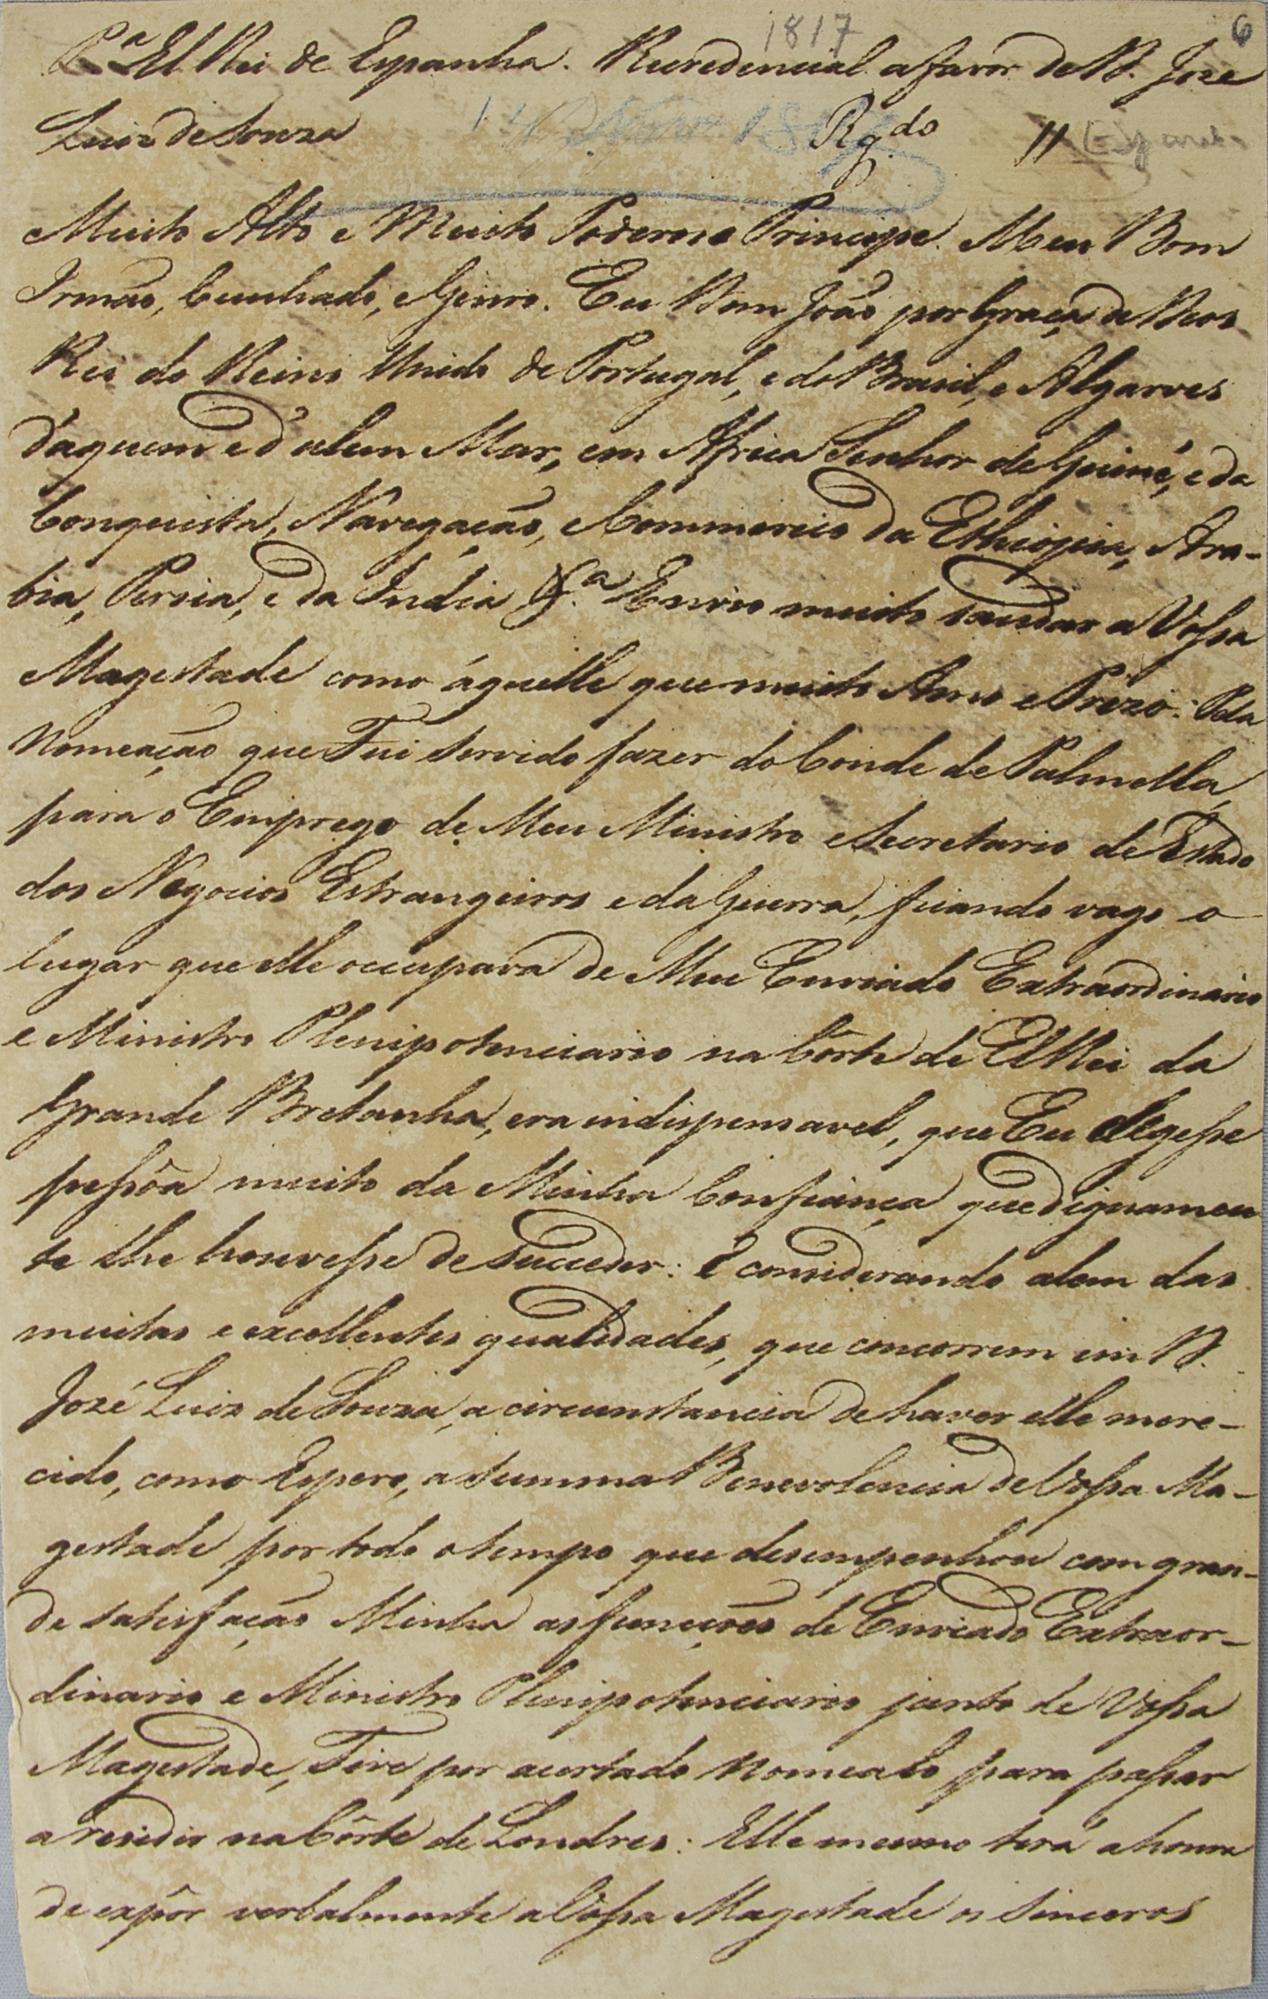 1817
6
P.ª El Rei de Espanha. Recredencial a favor de D. Joze
Luiz de Souza
Rg.do
//
Muito Alto e Muito Poderoso Principe. Meu Bom
Irmão, Cunhado, e Genro. Eu Dom João por Graça de Deos
Rei do Reino Unido de Portugal, e do Brasil, e Algarves
d'aquem e d'alem Mar, em Africa Senhor de Guiné, e da
Conquista, Navegação, e Commercio da Ethiopia, Ara-
bia, Persia, e da India &.ª Envio muito saudar a Vossa
Magestade como áquelle que muito Amo e Prézo. Pela
nomeação que Fui servido fazer do Conde de Palmella,
para o Emprego de Meu Ministro e Secretario de Estado
dos Negocios Estrangeiros e da Guerra, ficando vago o
lugar que elle occupava de Meu Enviado Extraordinario
e Ministro Plenipotenciario na Côrte de El Rei da
Grande Bretanha, era indispensavel, que Eu elegesse
pessôa muito da Minha Confiança que dignamen
te lhe houvesse de succeder: E considerando alem das
muitas e excellentes qualidades, que concorrem em D.
José Luiz de Souza, a circunstancia de haver elle mere-
cido, como Espero, a summa Benevolencia de Vossa Ma-
gestade por todo o tempo que desempenhou com gran-
de satisfação Minha as funcções de Enviado Extraor-
dinario e Ministro Plenipotenciario junto de Vossa
Magestade, Tive por acertado nomealo para passar
a residir na Côrte de Londres: Elle mesmo terá a honra
de expôr verbalmente a Vossa Magestade os sinceros